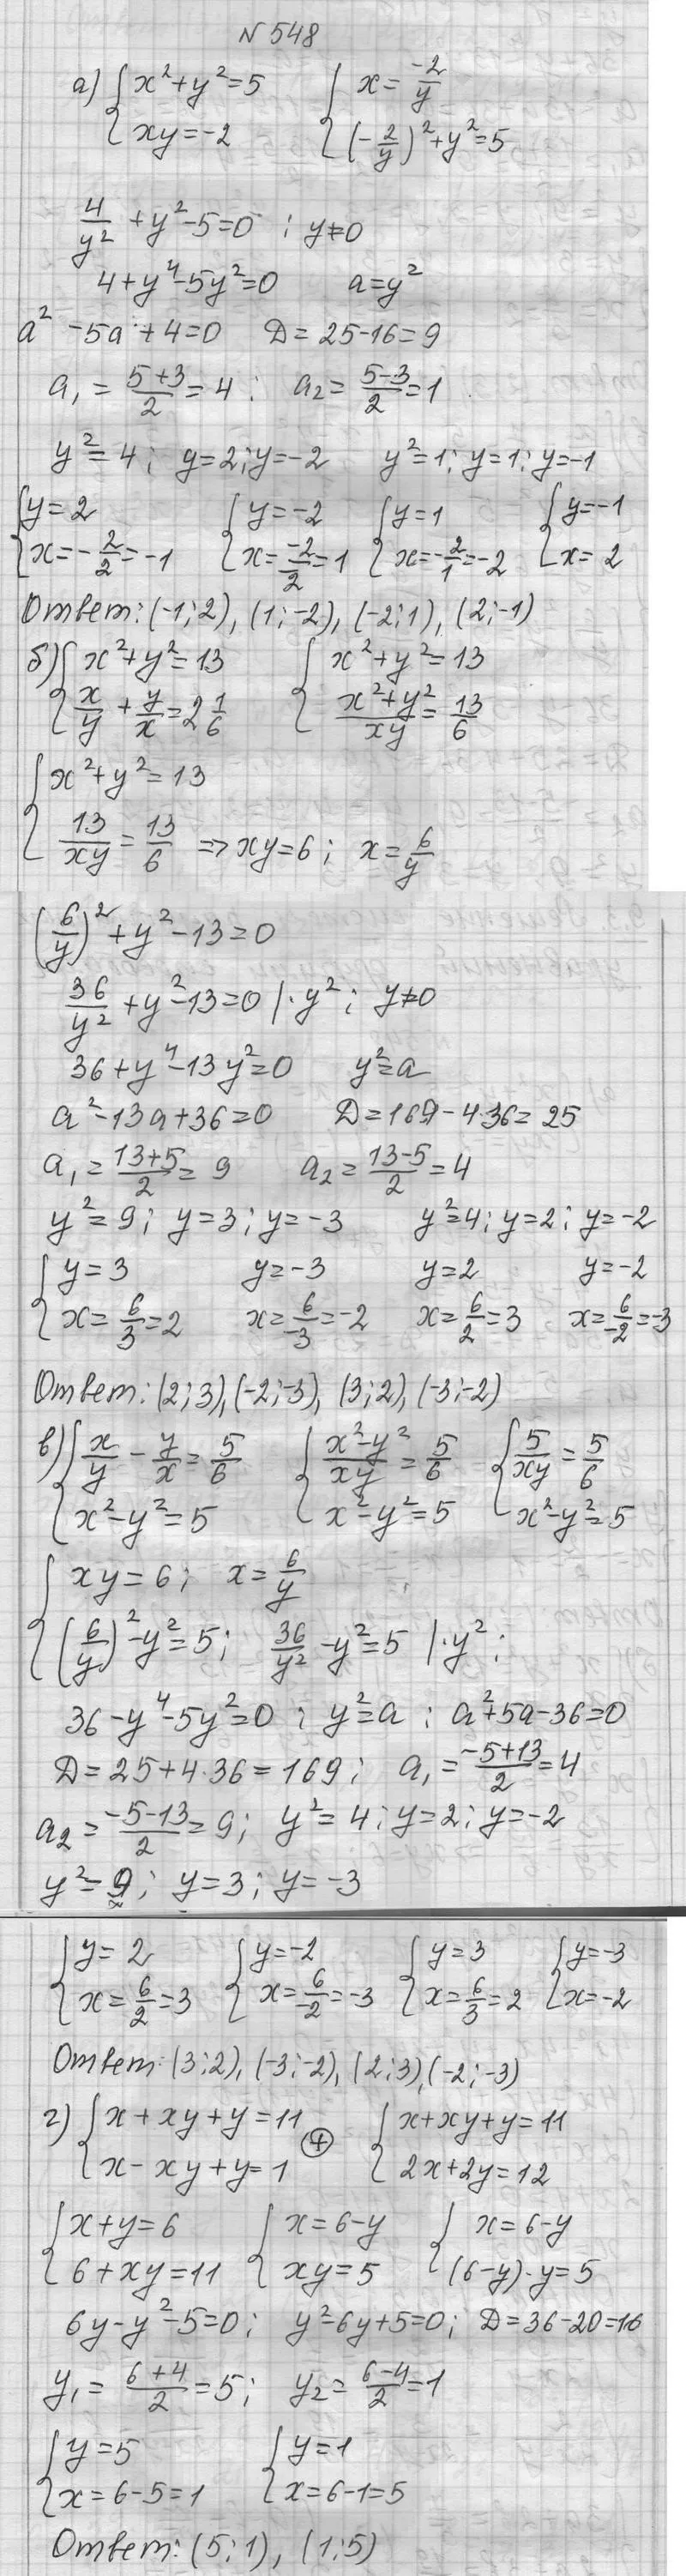 N 548
а) { x²+y²=5   { x=-2/y
{ xy=-2   { (-2/y)²+y²=5
4/y² +y²-5=0 ; y≠0
4+y⁴-5y²=0   a=y²
a² -5a+4=0   D=25-16=9
a₁ = (5+3)/2 = 4 ;   a₂= (5-3)/2 =1
y²=4; y=2; y=-2   y²=1; y=1; y=-1
{ y=2   { y=-2   { y=1   { y=-1
{ x=-2/2=-1   { x=-2/-2=1   { x=-2/1=-2   { x=2
Ответ: (-1;2), (1;-2), (-2;1), (2;-1)
б) { x²+y²=13   { x²+y²=13
{ x/y + y/x = 2 1/6   { (x²+y²)/xy = 13/6
{ x²+y²=13
{ 13/xy = 13/6 => xy=6; x=6/y
(6/y)²+y²-13=0
36/y² +y²-13=0 |·y² ; y≠0
36+y⁴-13y²=0   y²=a
a²-13a+36=0   D=169-4·36=25
a₁ = (13+5)/2 = 9   a₂ = (13-5)/2 = 4
y²=9; y=3; y=-3   y²=4; y=2; y=-2
{ y=3   y=-3   y=2   y=-2
{ x=6/3=2   x=6/-3=-2   x=6/2=3   x=6/-2=-3
Ответ: (2;3), (-2;-3), (3;2), (-3;-2)
в) { x/y - y/x = 5/6   { (x²-y²)/xy = 5/6   { 5/xy = 5/6
{ x²-y²=5   { x²-y²=5   { x²-y²=5
{ xy=6; x=6/y
{ (6/y)²-y²=5; 36/y² -y²=5 |·y² ;
36-y⁴-5y²=0 ; y²=a ; a²+5a-36=0
D=25+4·36=169; a₁ = (-5+13)/2 = 4
a₂ = (-5-13)/2 = 9; y²=4; y=2; y=-2
y²=9; y=3; y=-3
{ y=2   { y=-2   { y=3   { y=-3
{ x=6/2=3   { x=6/-2=-3   { x=6/3=2   { x=-2
Ответ: (3;2), (-3;-2), (2;3), (-2;-3)
г) { x+xy+y=11   { x+xy+y=11
{ x-xy+y=1 ⊕   { 2x+2y=12
{ x+y=6   { x=6-y   { x=6-y
{ 6+xy=11   { xy=5   { (6-y)·y=5
6y-y²-5=0; y²-6y+5=0; D=36-20=16
y₁ = (6+4)/2 = 5; y₂ = (6-4)/2 = 1
{ y=5   { y=1
{ x=6-5=1   { x=6-1=5
Ответ: (5;1), (1;5)